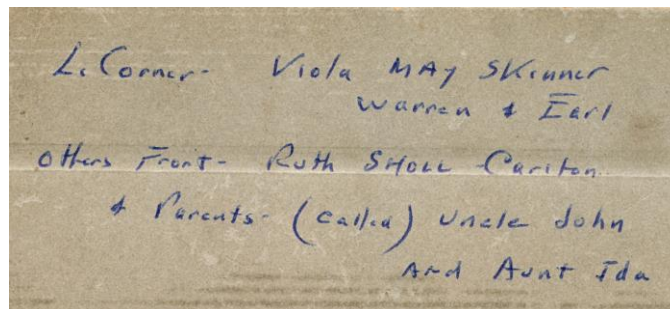 L. Corner- Viola MAy Skinner
Warren & Earl
Others Front- Ruth SHOLL Carlton
& Parents- (called) Uncle John
And Aunt Ida